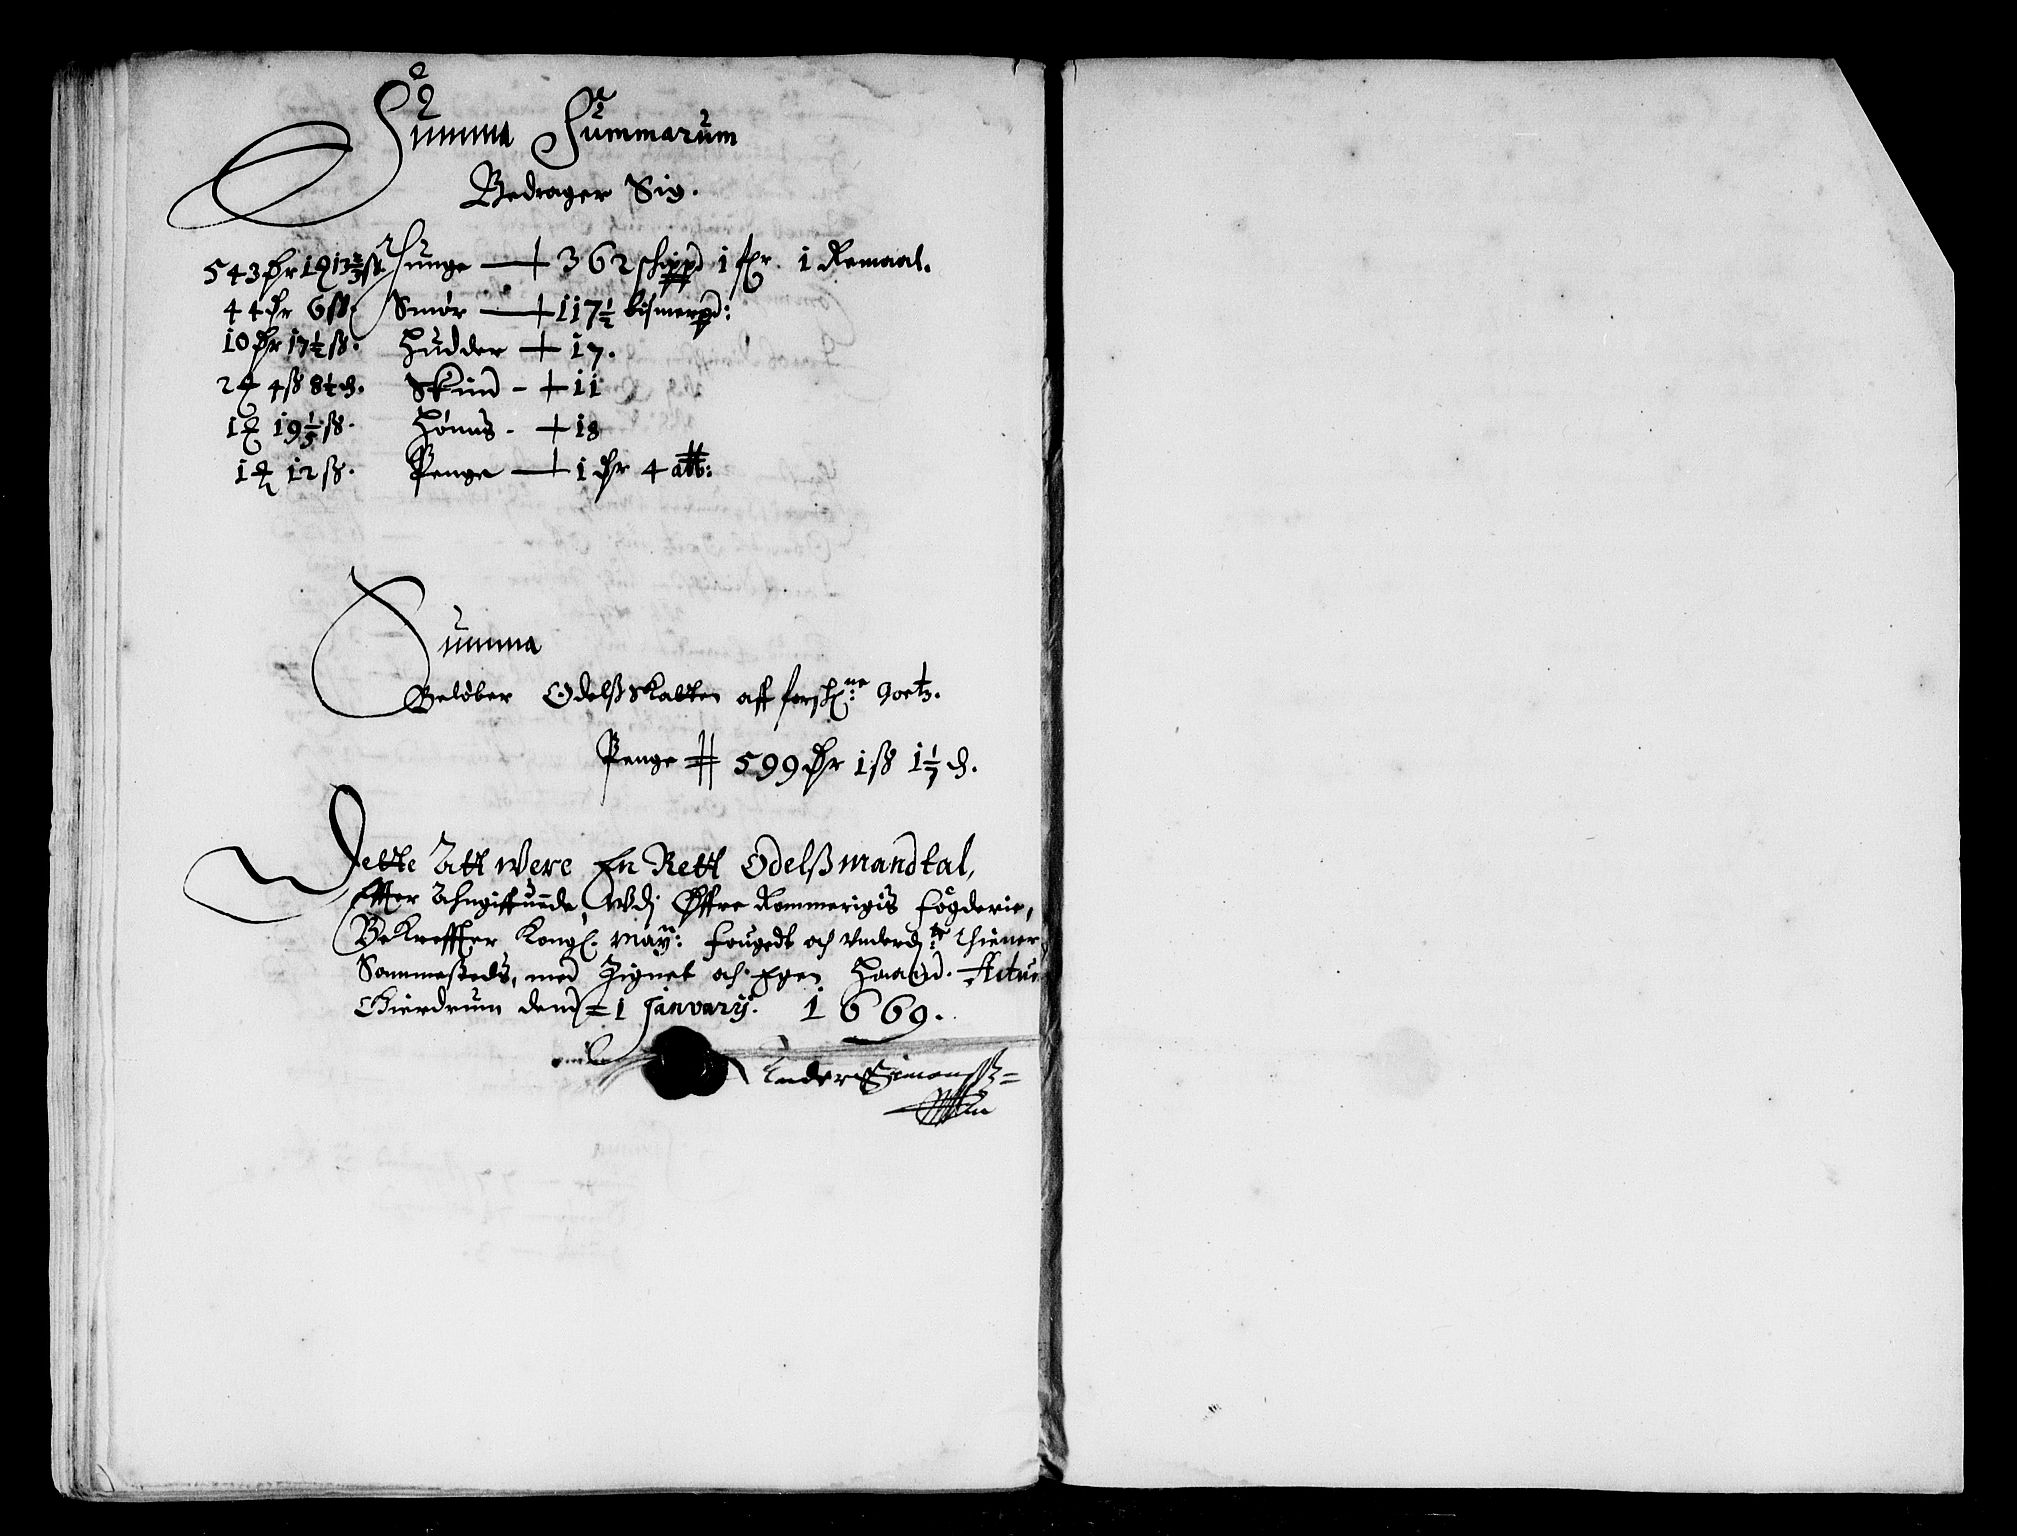 Summa Summarum
Bedrager Sig.
543 dr 1 ꝗ 13 2/3 ß. Tunge — 362 schippd 1 fr. 1 Remaal.
44 dr 6 ß. Smör — 117 1/2 bismerpd:
10 dr 17 1/2 ß. Hudder — 17.
2 ꝗ 4 ß 8 1/2 d. Skind — 11
1 ꝗ 19 1/5 ß. Hönns — 18
1 ꝗ 12 ß. Penge — 1 dr 4 alb:
Summa
Belöber Odelßskatten aff forschne: goetz.
Penge 599 dr 1 ß 1 1/7 d.
Dette Att were En Rett Odelßmandtal,
Effter Ahngiffuende, Wdj Öffre Rommerigis fögderie,
Bekreffter Kongl. Mayn: fougedt och Underdte: Thiener
Sammesteds, med Zignet och Egen Haand. Actum
Gierdrum dend 1 January. 1669.
Anders Simonßß